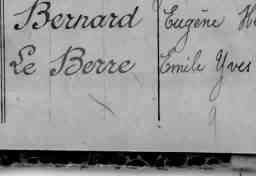 Bernard Eugène
Le Berre Emile Yves